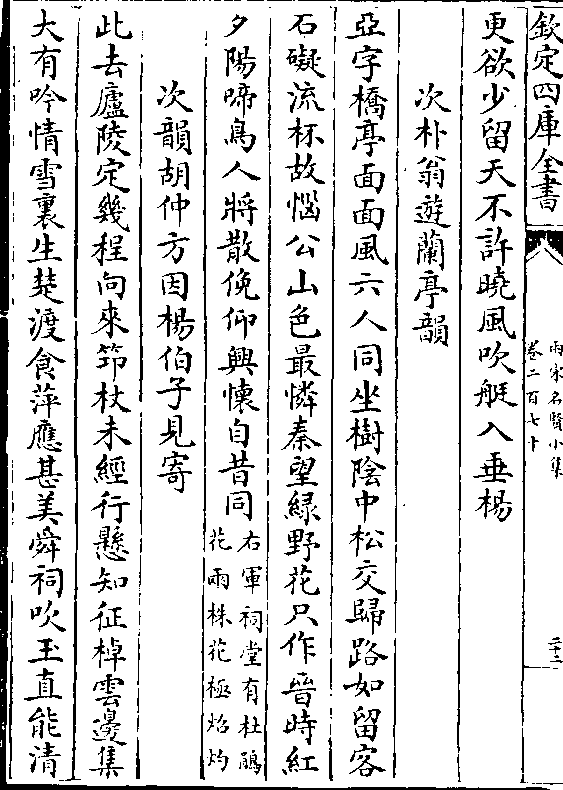 欽定四庫全書
兩宋名賢小集
卷二百七十
二十二
更欲少留天不許曉風吹艇入垂楊
次朴翁遊蘭亭韻
亞字橋亭面面風六人同坐樹陰中松交歸路如留客
石礙流杯故惱公山色最憐秦望綠野花只作晉時紅
夕陽啼鳥人將散俛仰興懷自昔同
右軍祠堂有杜鵑
花兩株花極焰灼
次韻胡仲方因楊伯子見寄
此去廬陵定幾程向來笻杖未經行懸知征棹雲邊集
大有吟情雪裏生楚渡食萍應甚美舜祠吹玉直能清